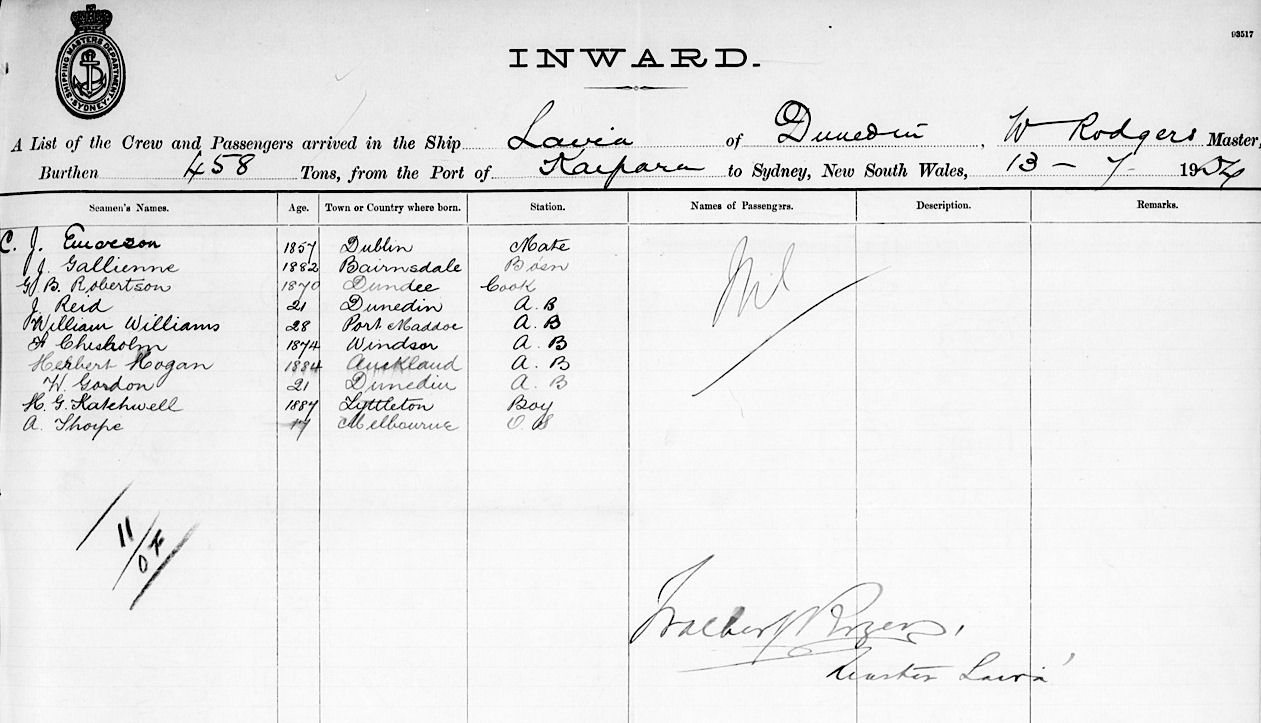 SHIPPING MASTERS DEPARTMENT. SYDNEY
93517
INWARD.
A List of the Crew and Passengers arrived in the Ship Lavia of Dunedin, W Rodgers Master,
Burthen 458 Tons, from the Port of Kaipara to Sydney, New South Wales, 13 - 7 - 1904
Seamen's Names. Age. Town or Country where born. Station. Names of Passengers. Description. Remarks.
C. J. Emerson 1857 Dublin Mate Nil
J. Gallienne 1882 Bairnsdale Bosn
G. B. Robertson 1870 Dundee Cook
J. Reid 21 Dunedin A. B
William Williams 28 Port Maddoc A. B
Chisholm 1874 Windsor A. B
Herbert Hogan 1884 Auckland A. B
W. Gordon 21 Dunedin A. B
H. G. Hatchwell 1887 Lyttleton Boy
A. Thorpe 17 Melbourne O. S
11/
Master Lavia